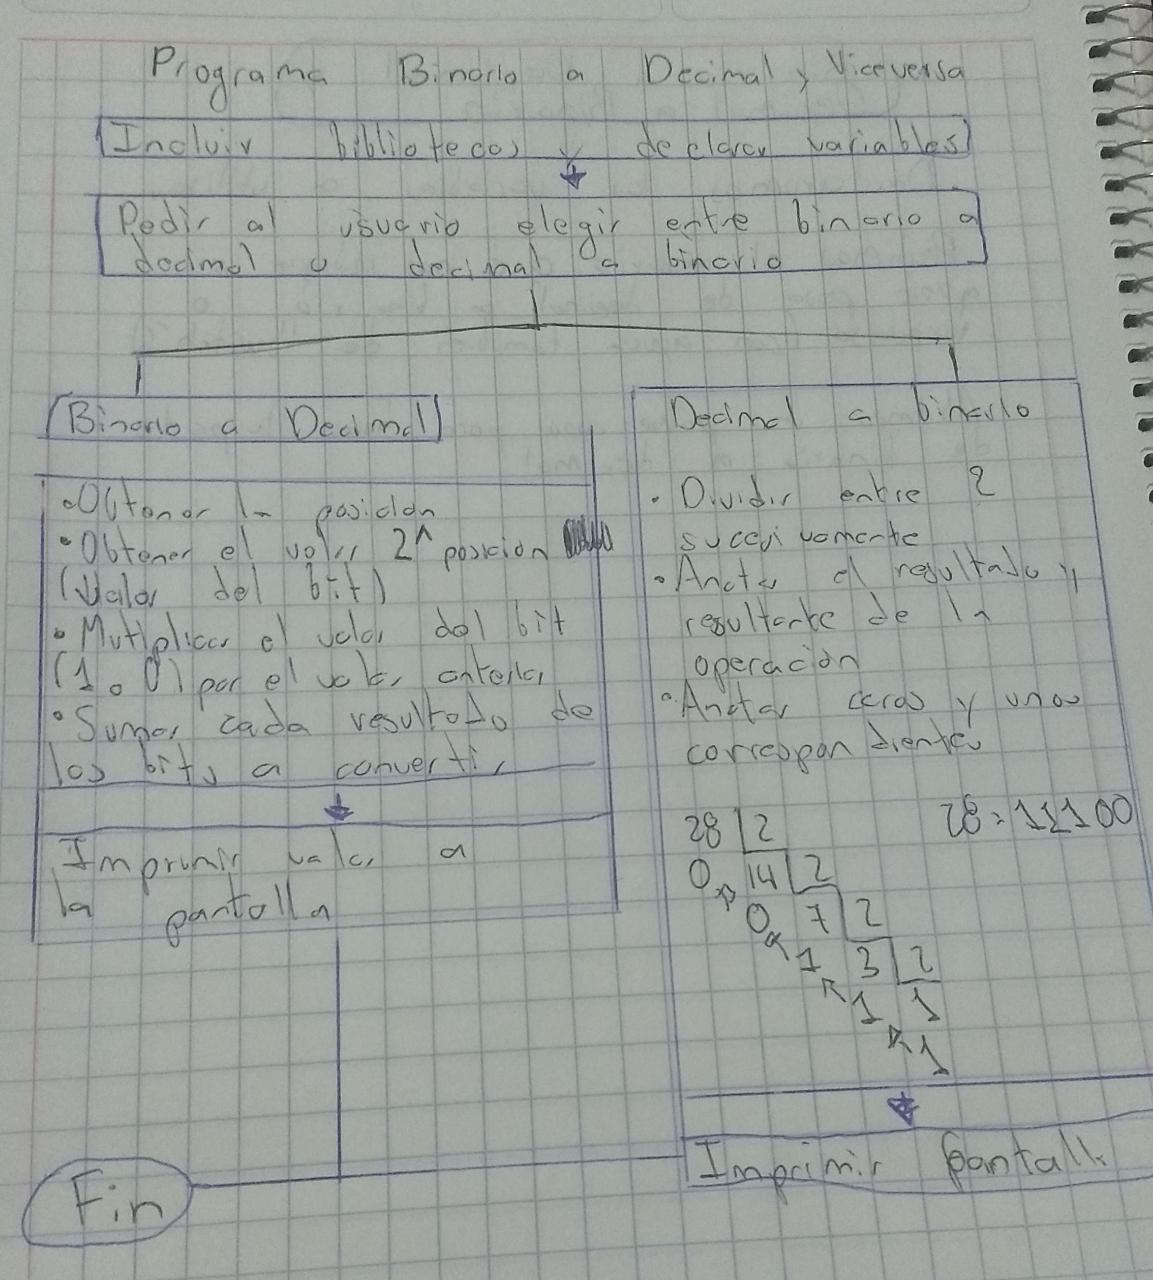 Programa Binario a Decimal y Viceversa
Incluir bibliotecas y declarar variables
Pedir al usuario elegir entre binario a
decimal o decimal a binario
Binario a Decimal
• Obtener la posicion
• Obtener el valor 2^ posicion
(Valor del bit)
• Mutiplicar el valor del bit
(1 o 0) por el valor anterior
• Sumar cada resultado de
los bits a convertir
Imprimir valor a
la pantalla
Decimal a binario
• Dividir entre 2
sucesivamente
• Anotar el resultado y
resultante de la
operación
• Anotar ceros y unos
correspondientes
28 2 28=11100
0 14 2
0 7 2
1 3 2
1 1
1
Imprimir pantalla
Fin